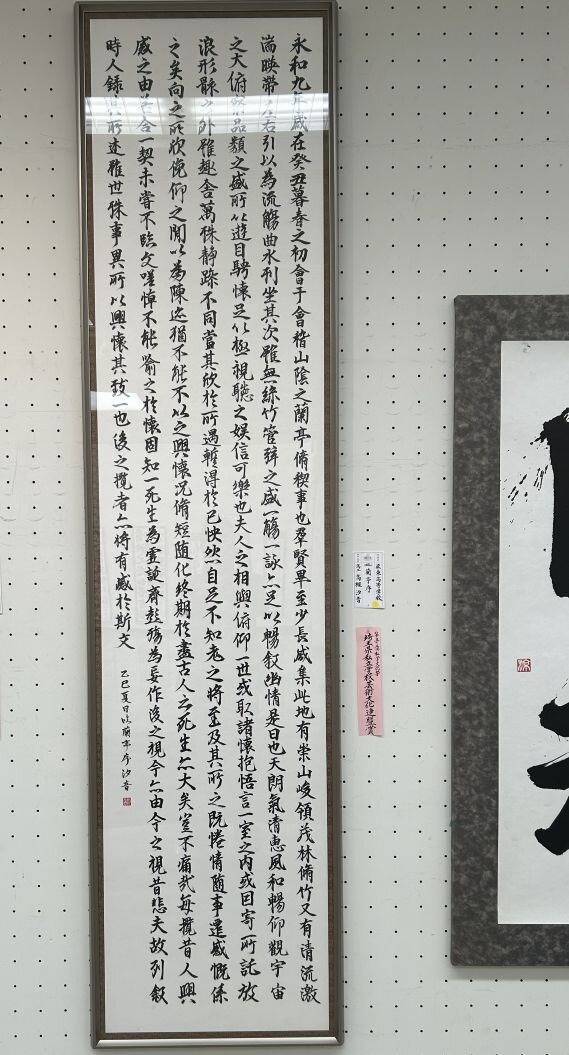 永和九年歲在癸丑暮春之初會于會稽山陰之蘭亭脩稧事也羣賢畢至少長咸集此地有崇山峻領茂林脩竹又有清流激
湍暎帶左右引以為流觴曲水列坐其次雖無絲竹管弦之盛一觴一詠亦足以暢敘幽情是日也天朗氣清惠風和暢仰觀宇宙
之大俯察品類之盛所以遊目騁懷足以極視聽之娛信可樂也夫人之相與俯仰一世或取諸懷抱悟言一室之內或因寄所託放
浪形骸之外雖趣舍萬殊靜躁不同當其欣於所遇暫得於己快然自足不知老之將至及其所之既惓情隨事遷感慨係
之矣向之所欣俛仰之間以為陳迹猶不能不以之興懷況脩短隨化終期於盡古人云死生亦大矣豈不痛哉每攬昔人興
感之由若合一契未嘗不臨文嗟悼不能喻之於懷固知一死生為虛誕齊彭殤為妄作後之視今亦由今之視昔悲夫故列敘
時人錄其所述雖世殊事異所以興懷其致一也後之攬者亦將有感於斯文
乙巳夏日臨蘭亭序汐音
蘭亭序
汐音
埼玉県私立学校芸術文化連盟賞